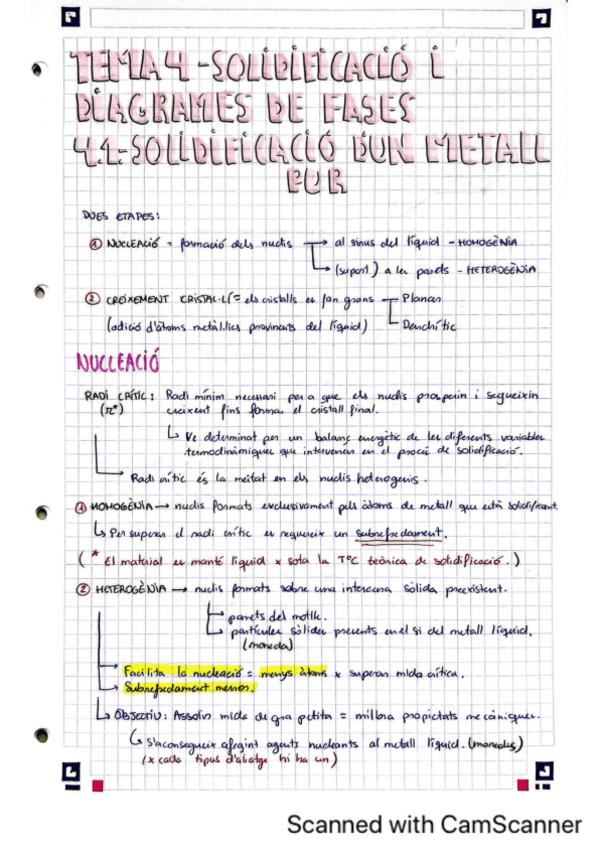 TEMA 4 - SOLIDIFICACIÓ i
DIAGRAMES DE FASES
4.1- SOLIDIFICACIÓ D'UN METALL
PUR
DUES ETAPES:
① NUCLEACIÓ = formació dels nuclis → al sinus del líquid - HOMOGÈNIA
↳ (suport) a les parets - HETEROGÈNIA
② CREIXEMENT CRISTAL·LÍ = els cristalls es fan grans — Planar
(adició d'àtoms metàl·lics provinents del líquid) — Dendrític
NUCLEACIÓ
RADI CRÍTIC: Radi mínim necessari per a que els nuclis prosperin i segueixin
(r*) creixent fins formar el cristall final.
↳ Ve determinat per un balanç energètic de les diferents variables
termodinàmiques que intervenen en el procés de solidificació.
→ Radi crític és la meitat en els nuclis heterogenis.
① HOMOGÈNIA → nuclis formats exclusivament pels àtoms de metall que està solidificant.
↳ Per superar el radi crític es requereix un subrefredament.
(* El material es manté líquid x sota la TºC teòrica de solidificació.)
② HETEROGÈNIA → nuclis formats sobre una intercara sòlida preexistent.
→ parets del motlle.
→ partícules sòlides presents en el si del metall líquid.
→ Facilita la nucleació = menys àtoms x superar mida crítica.
→ Subrefredament menor.
↳ OBJECTIU: Assolir mida de gra petita = millora propietats mecàniques.
↳ S'aconsegueix afegint agents nucleants al metall líquid.
(x cada tipus d'aliatge hi ha un)
Scanned with CamScanner